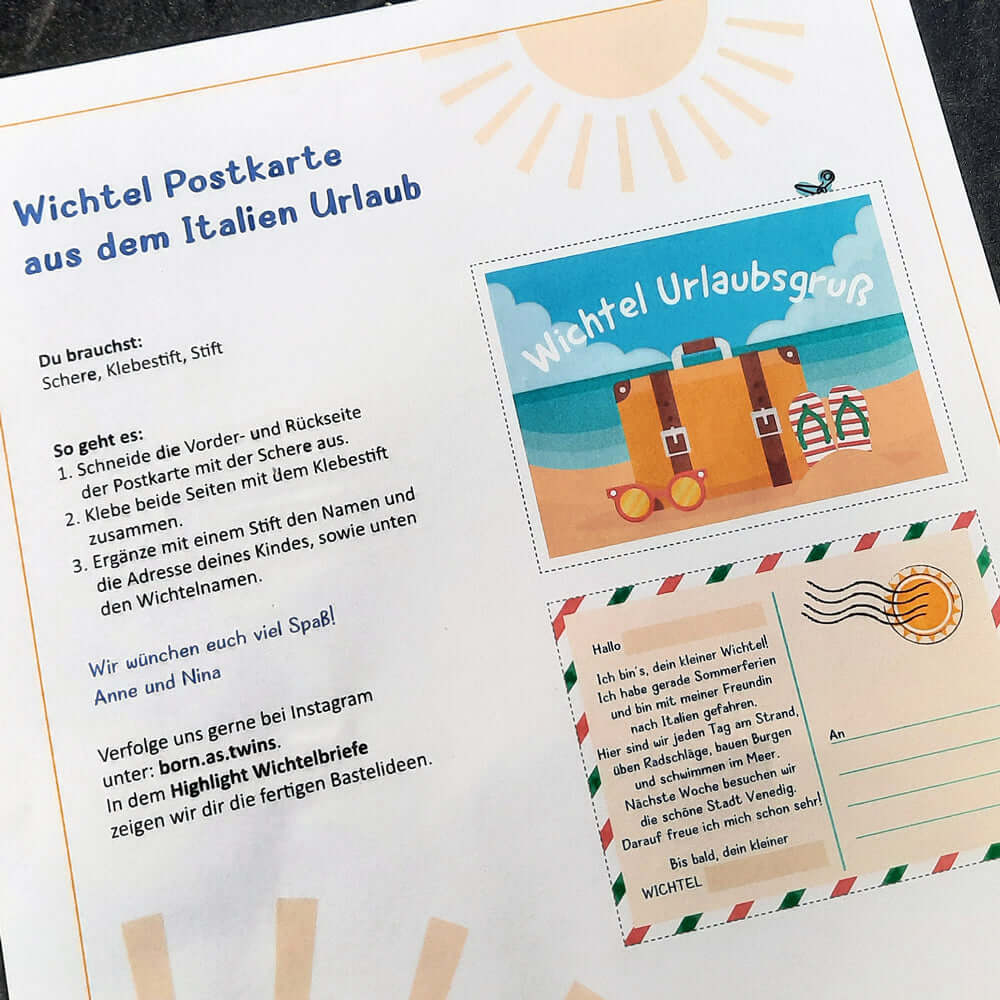 Wichtel Postkarte
aus dem Italien Urlaub
Du brauchst:
Schere, Klebestift, Stift
So geht es:
1. Schneide die Vorder- und Rückseite
der Postkarte mit der Schere aus.
2. Klebe beide Seiten mit dem Klebestift
zusammen.
3. Ergänze mit einem Stift den Namen und
die Adresse deines Kindes, sowie unten
den Wichtelnamen.
Wir wünchen euch viel Spaß!
Anne und Nina
Verfolge uns gerne bei Instagram
unter: born.as.twins.
In dem Highlight Wichtelbriefe
zeigen wir dir die fertigen Bastelideen.
Wichtel Urlaubsgruß
Hallo
Ich bin's, dein kleiner Wichtel!
Ich habe gerade Sommerferien
und bin mit meiner Freundin
nach Italien gefahren.
Hier sind wir jeden Tag am Strand,
üben Radschläge, bauen Burgen
und schwimmen im Meer.
Nächste Woche besuchen wir
die schöne Stadt Venedig.
Darauf freue ich mich schon sehr!
Bis bald, dein kleiner
WICHTEL
An